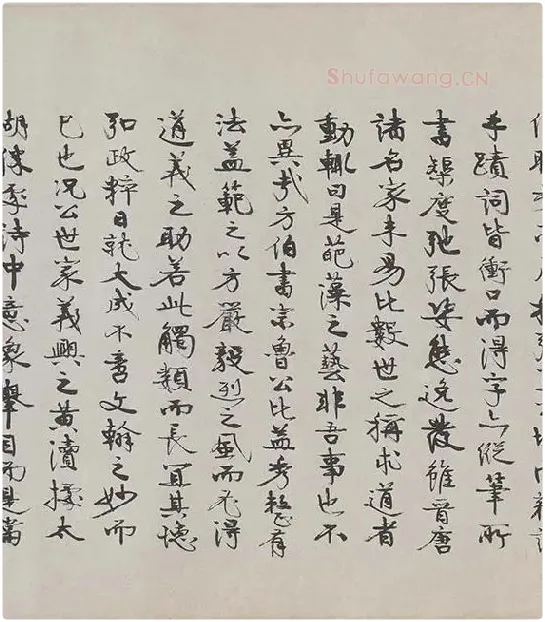 Shufawang.CN
手蹟詞皆衝口而得字亦縱筆所
書榘度弛張姿態逸發雖晉唐
諸名家未易比數世之稱求道者
動輒曰是葩藻之藝非吾事也不
亦異哉方伯書宗魯公比益秀整有
法蓋範之以方嚴毅烈之風而又得
道義之助若此觸類而長宜其德
弘政粹日就大成不啻文翰之妙而
已也況公世家義興之黃瀆據太
詩中意象舉目而是當